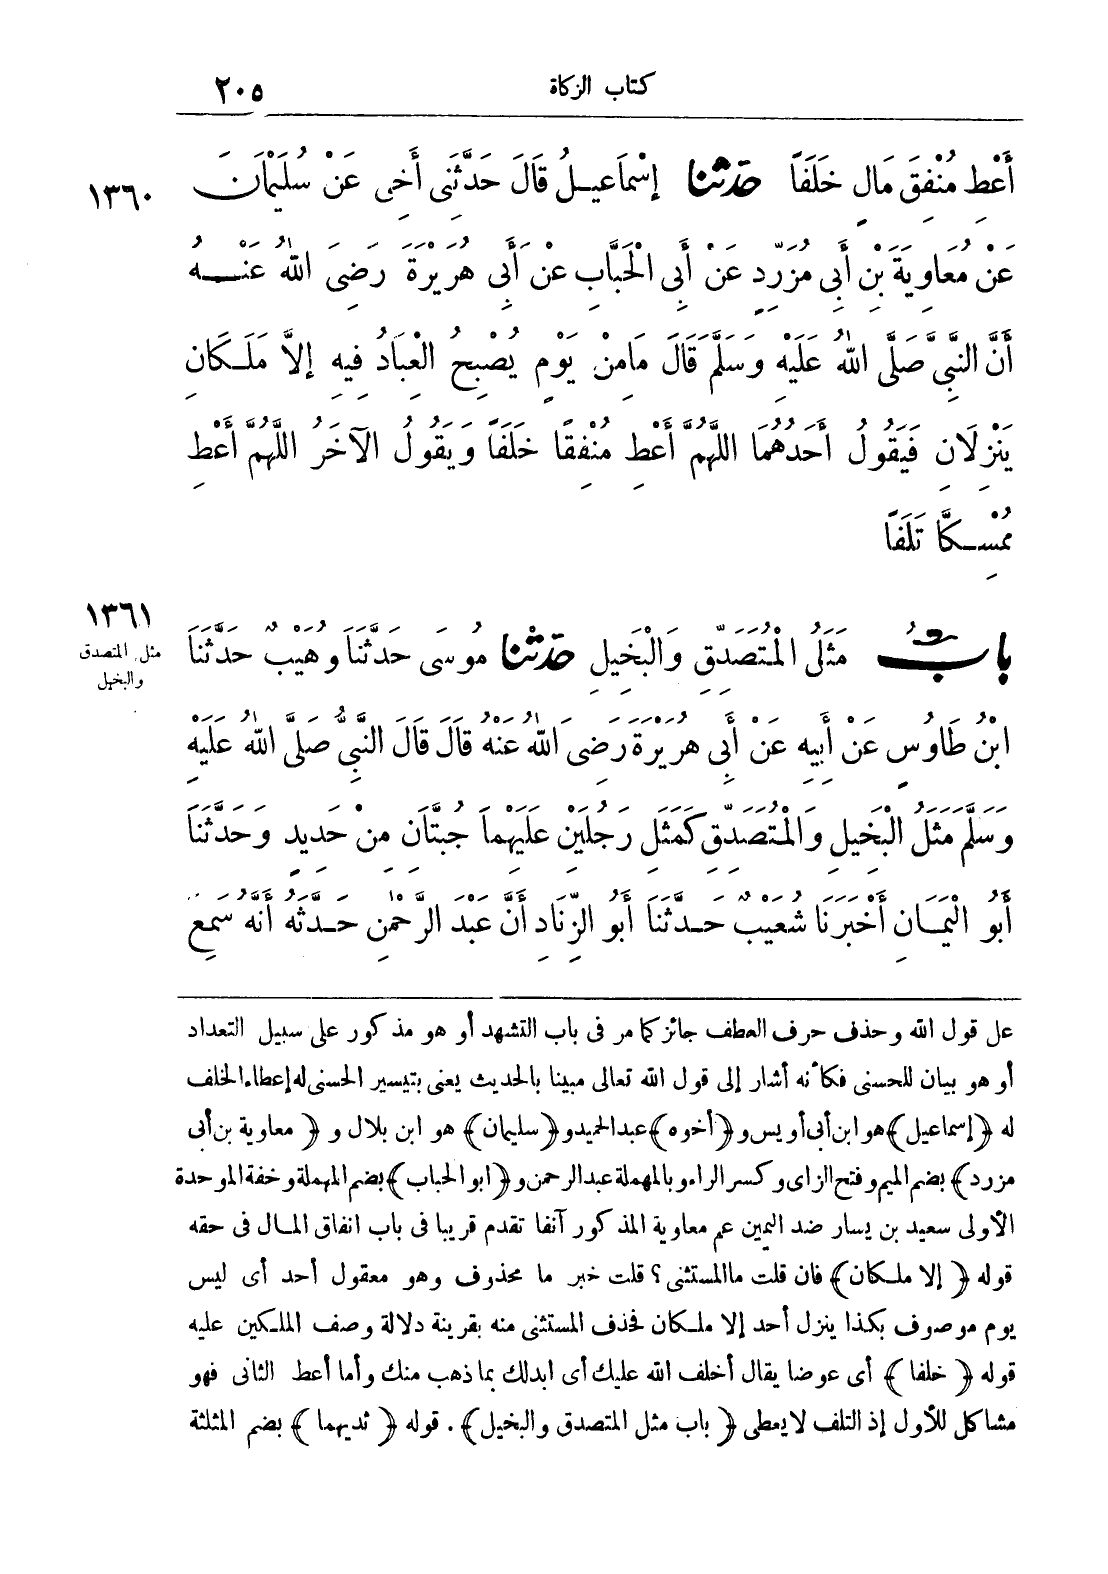 كتاب الزكاة
٢٠٥
أَعْطِ مُنْفِقَ مَالٍ خَلَفًا حَدَّثَنَا إِسْمَاعِيلُ قَالَ حَدَّثَنِى أَخِى عَنْ سُلَيْمَانَ
١٣٦٠
عَنْ مُعَاوِيَةَ بْنِ أَبِى مُزَرِّدٍ عَنْ أَبِى الْحُبَابِ عَنْ أَبِى هُرَيْرَةَ رَضِىَ اللهُ عَنْهُ
أَنَّ النَّبِىَّ صَلَّى اللهُ عَلَيْهِ وَسَلَّمَ قَالَ مَا مِنْ يَوْمٍ يُصْبِحُ الْعِبَادُ فِيهِ إِلَّا مَلَكَانِ
يَنْزِلَانِ فَيَقُولُ أَحَدُهُمَا اللَّهُمَّ أَعْطِ مُنْفِقًا خَلَفًا وَيَقُولُ الْآخَرُ اللَّهُمَّ أَعْطِ
مُمْسِكًا تَلَفًا
١٣٦١
مثل المتصدق
والبخيل
بَابُ مَثَلِ الْمُتَصَدِّقِ وَالْبَخِيلِ حَدَّثَنَا مُوسَى حَدَّثَنَا وُهَيْبٌ حَدَّثَنَا
ابْنُ طَاوُسٍ عَنْ أَبِيهِ عَنْ أَبِى هُرَيْرَةَ رَضِىَ اللهُ عَنْهُ قَالَ قَالَ النَّبِىُّ صَلَّى اللهُ عَلَيْهِ
وَسَلَّمَ مَثَلُ الْبَخِيلِ وَالْمُتَصَدِّقِ كَمَثَلِ رَجُلَيْنِ عَلَيْهِمَا جُبَّتَانِ مِنْ حَدِيدٍ وَحَدَّثَنَا
أَبُو الْيَمَانِ أَخْبَرَنَا شُعَيْبٌ حَدَّثَنَا أَبُو الزِّنَادِ أَنَّ عَبْدَ الرَّحْمٰنِ حَدَّثَهُ أَنَّهُ سَمِعَ
على قول الله وحذف حرف العطف جائز كما مر فى باب التشهد أو هو مذكور على سبيل التعداد
أو هو بيان للحسنى فكأنه أشار إلى قول الله تعالى مبينا بالحديث يعنى بتيسير الحسنى له إعطاء الخلف
له ﴿إسماعيل﴾ هو ابن أبى أويس و﴿أخوه﴾ عبد الحميد و﴿سليمان﴾ هو ابن بلال و ﴿معاوية بن أبى
مزرد﴾ بضم الميم وفتح الزاى وكسر الراء وبالمهملة عبد الرحمن و﴿ابو الحباب﴾ بضم المهملة وخفة الموحدة
الأولى سعيد بن يسار ضد اليمين عم معاوية المذكور آنفا تقدم قريبا فى باب انفاق المال فى حقه
قوله ﴿إلا ملكان﴾ فان قلت ما المستثنى؟ قلت خبر ما محذوف وهو معقول أحد أى ليس
يوم موصوف بكذا ينزل أحد إلا ملكان فحذف المستثنى منه بقرينة دلالة وصف الملكين عليه
قوله ﴿خلفا﴾ أى عوضا يقال أخلف الله عليك أى ابدلك بما ذهب منك وأما أعط الثانى فهو
مشاكل للأول إذ التلف لا يعطى ﴿باب مثل المتصدق والبخيل﴾. قوله ﴿ثديهما﴾ بضم المثلثة